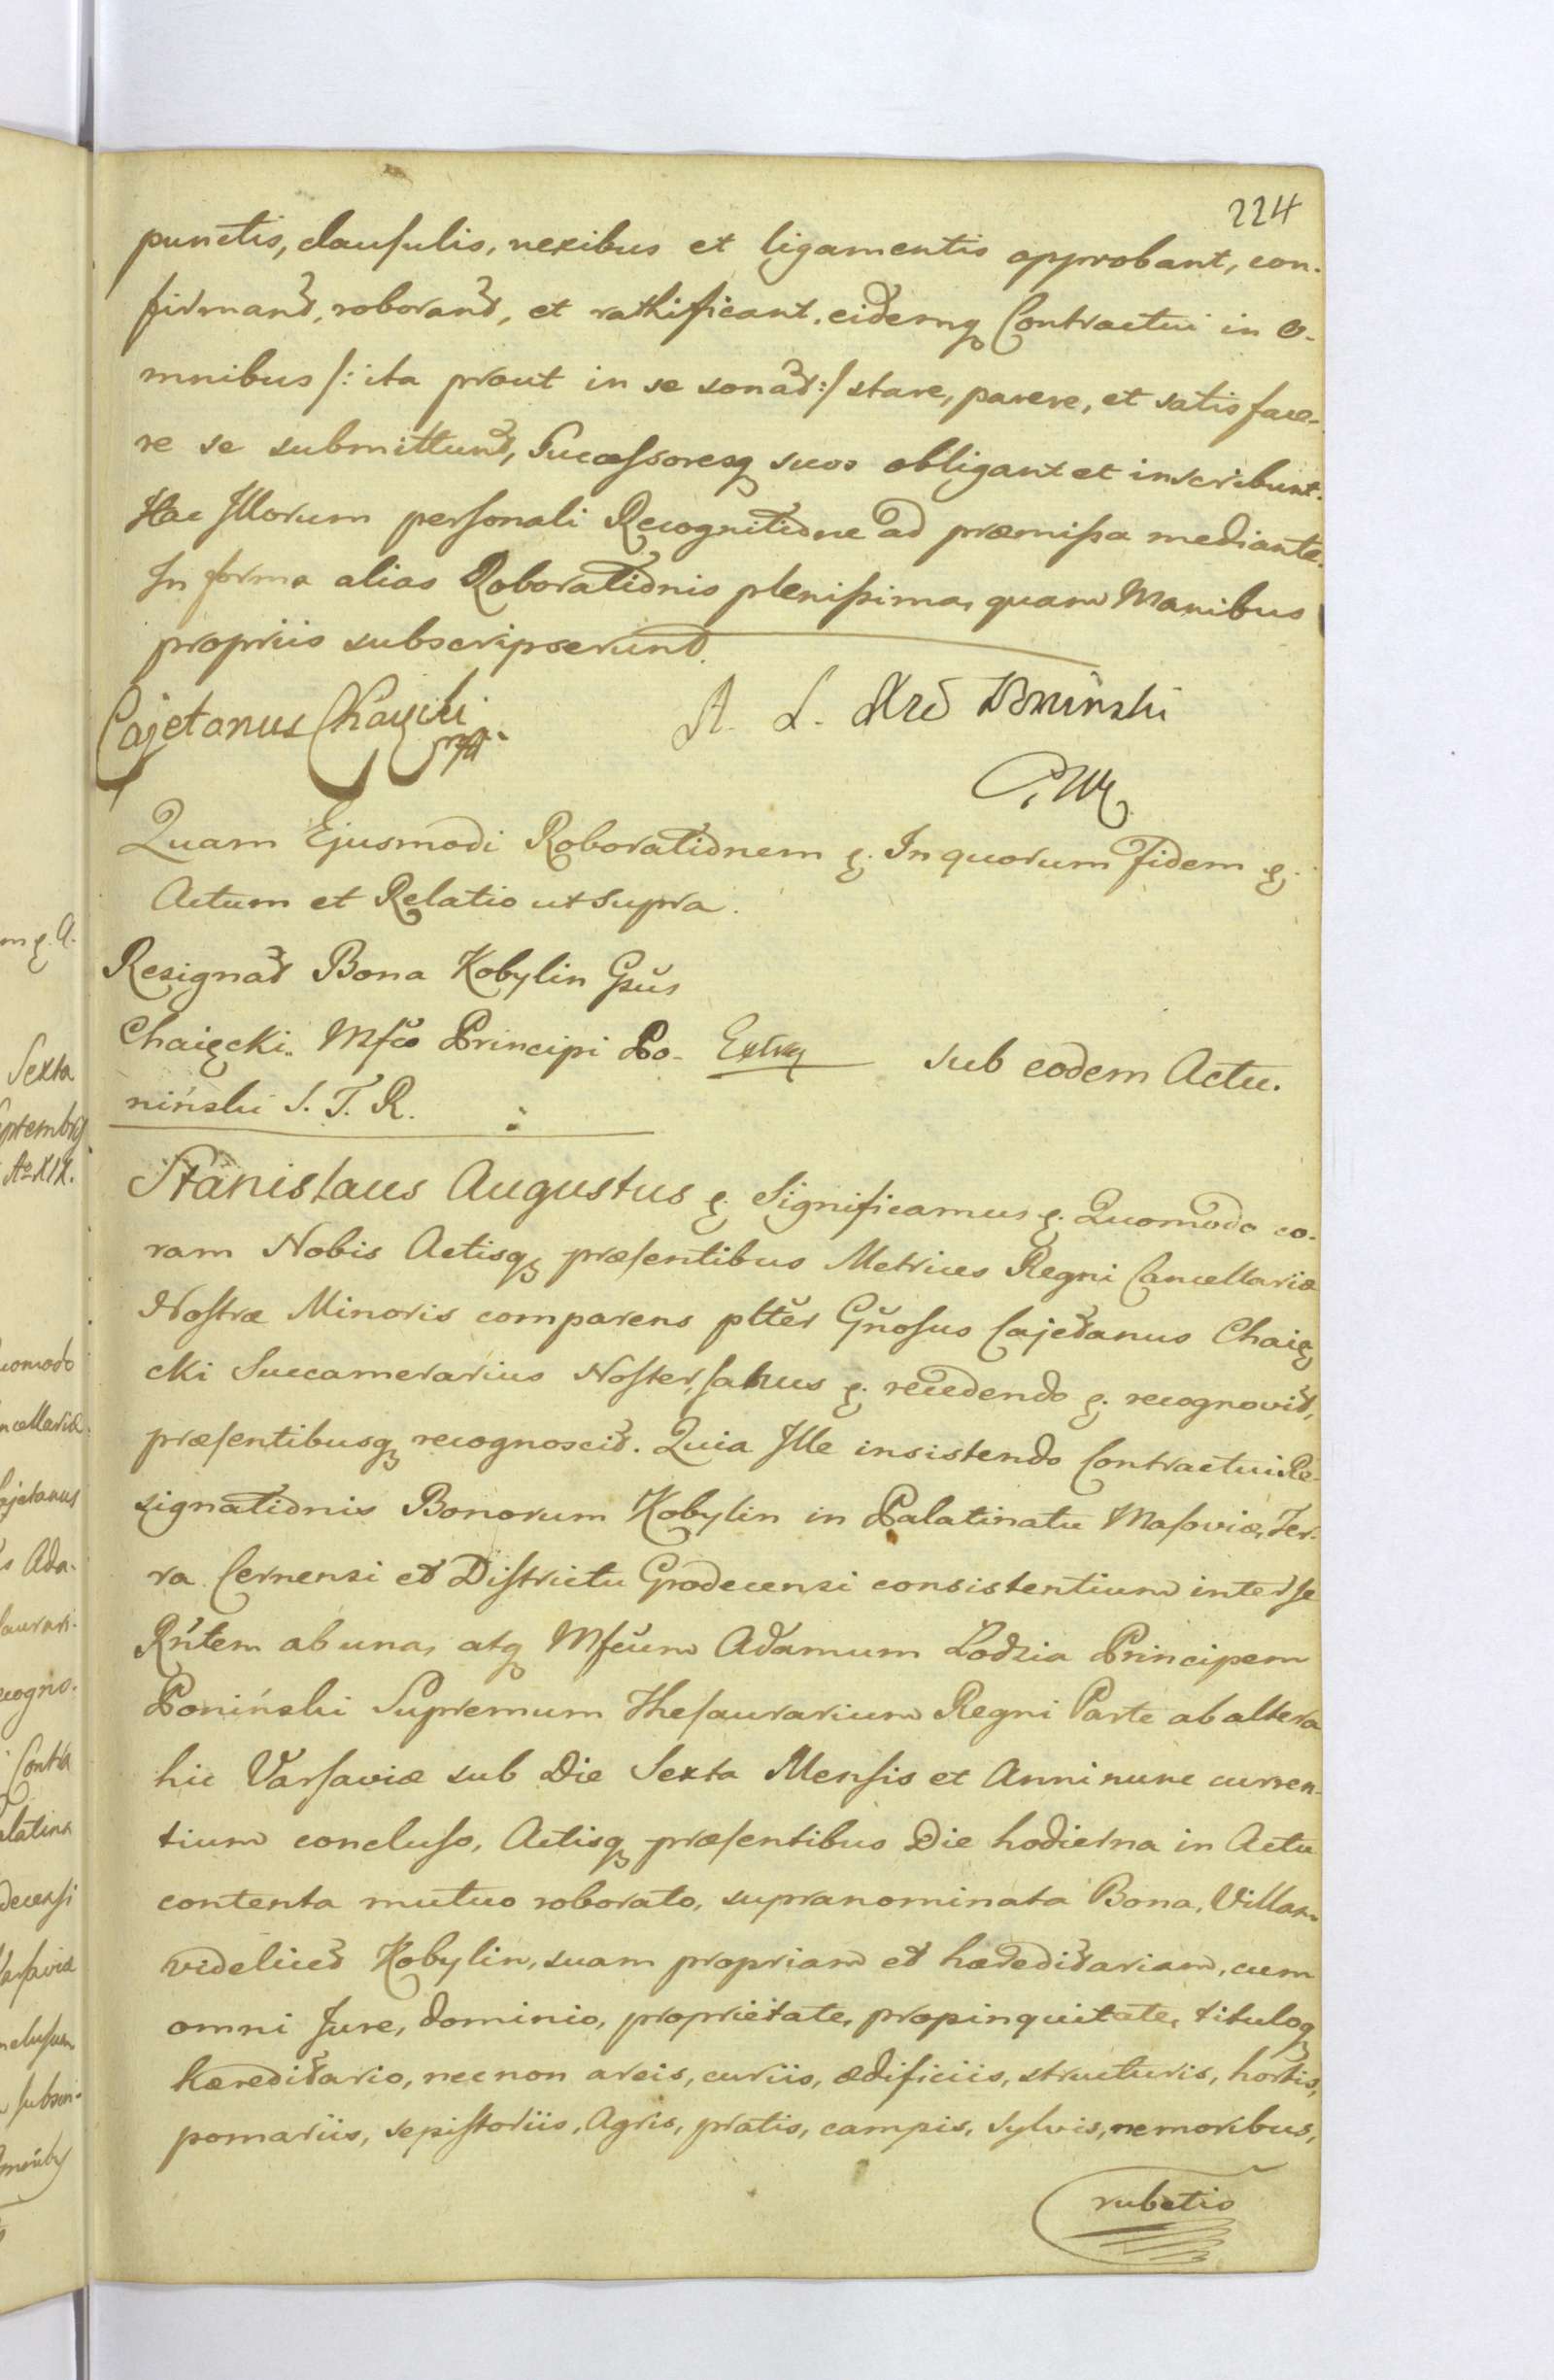 224
punctis, clausulis, nexibus et ligamentis approbant, con-
firmant, roborant, et rathificant, eidemq Contractui in o-
mnibus /: ita prout in se sonat :/ stare, parere, et satisface-
re se submittunt, Successoresq suos obligant et inscribunt.
Hac Illorum personali Recognitione ad præmissa mediante.
In forma alias Roborationis plenissima, quam Manibus
propriis subscripserunt.
Cajetanus Chaięcki mp.
A. L. Xże Poniński
P. W. K.
Quam Ejusmodi Roborationem &. In quorum Fidem &.
Actum et Relatio ut supra.
Resignat Bona Kobylin Gsus
Chaięcki. Mfco Principi Po-
niński S. T. R.
Extr
sub eodem Actu.
Stanislaus Augustus &. Significamus &. Quomodo co-
ram Nobis Actisq præsentibus Metrices Regni Cancellariæ
Nostræ Minoris comparens plter Gnosus Cajetanus Chaię
cki Succamerarius Noster, sanus &. recedendo &. recognovit,
præsentibusq recognoscit. Quia Ille insistendo Contractui Re-
signationis Bonorum Kobylin in Palatinatu Masoviæ, Ter-
ra Cernensi et Districtu Grodecensi consistentium inter se
Rntem ab una, atq Mfcum Adamum Łodzia Principem
Poniński Supremum Thesaurarium Regni Parte ab altera
hic Varsaviæ sub Die Sexta Mensis et Anni nunc curren-
tium concluso, Actisq præsentibus Die hodierna in Actu
contenta mutuo roborato, supranominata Bona, Villam
videlicet Kobylin, suam propriam et hæreditariam, cum
omni Jure, dominio, proprietate, propinquitate, tituloq
hæreditario, nec non areis, curiis, ædificiis, structuris, hortis,
pomariis, sepistoriis, Agris, pratis, campis, sylvis, nemoribus,
rubetis